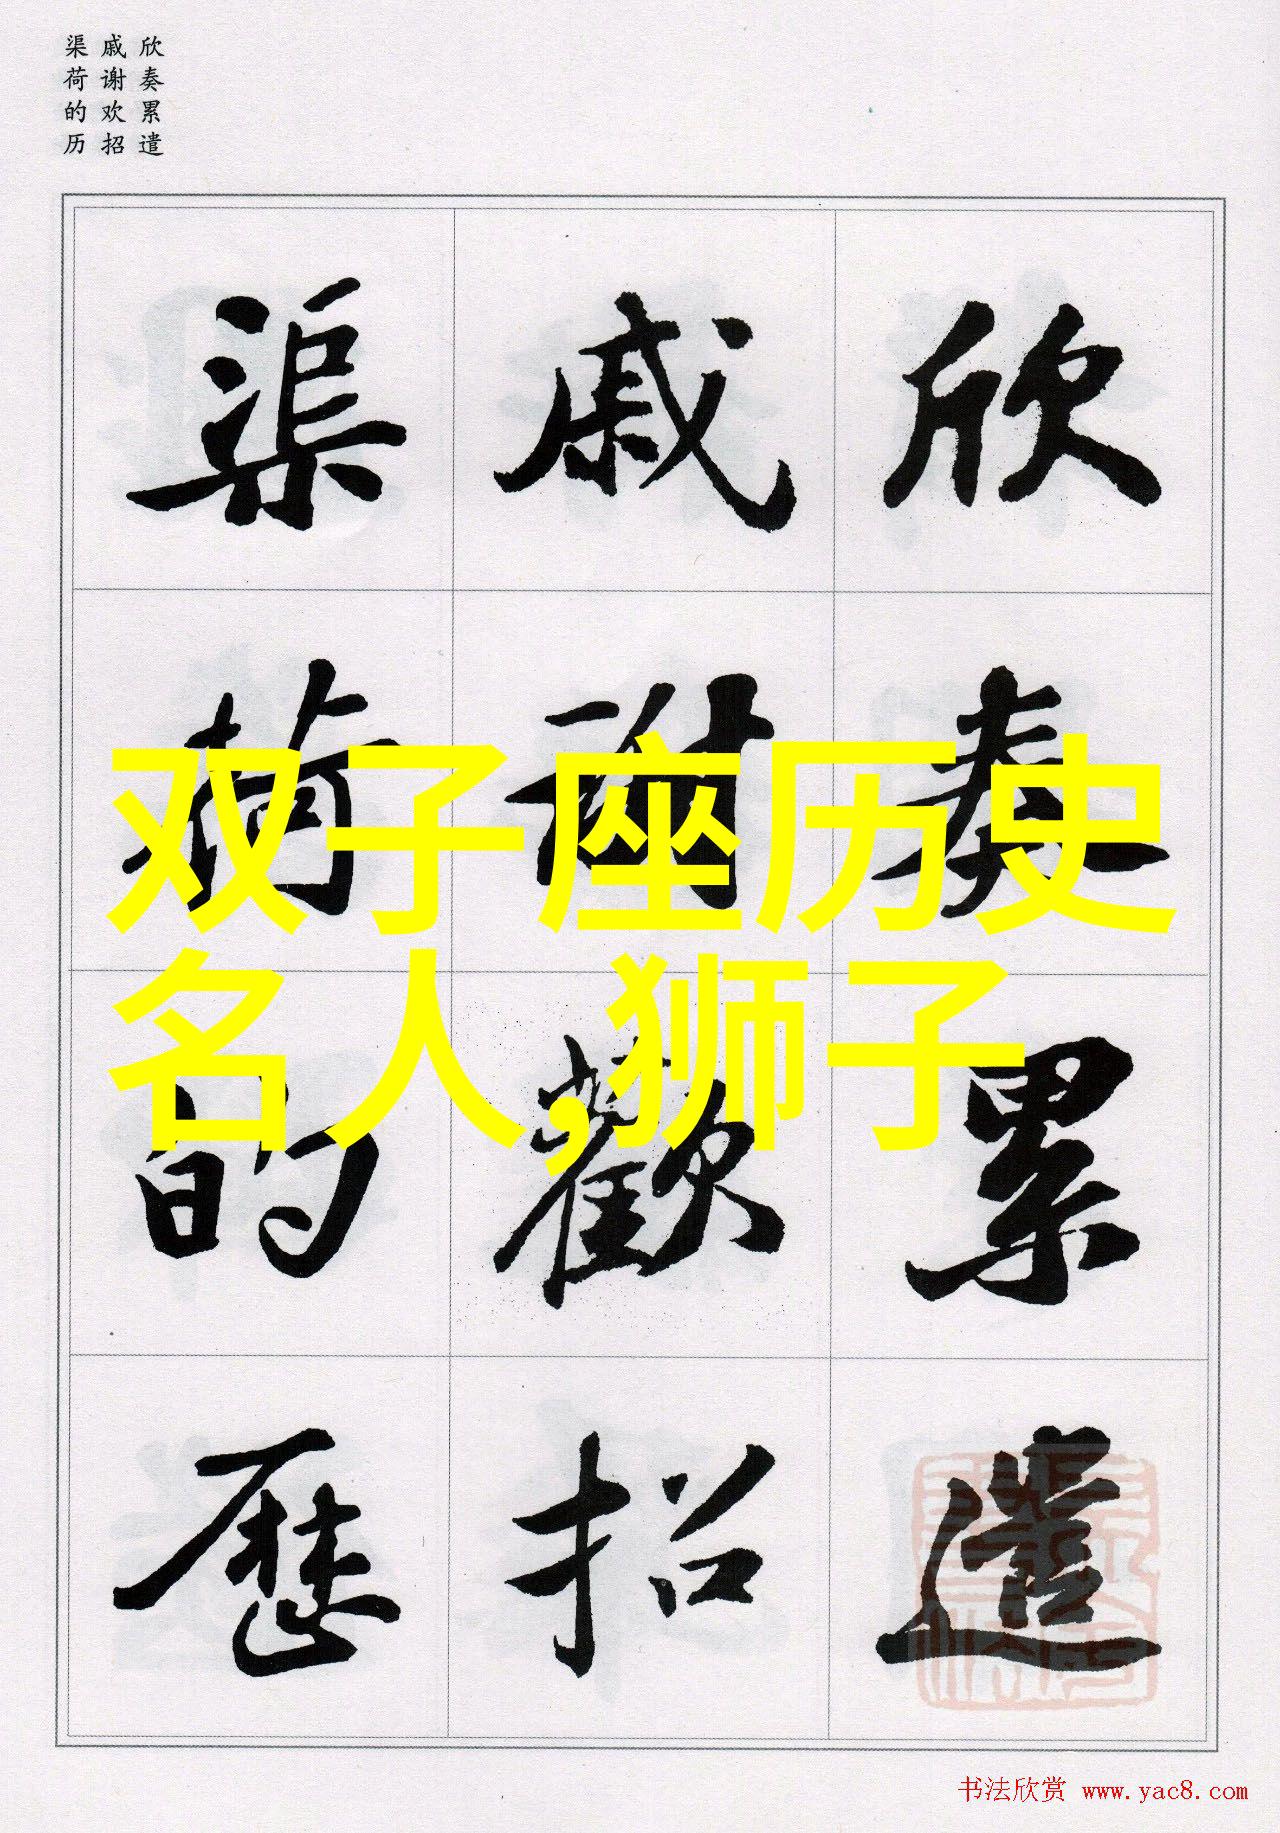 欣奏累遣
戚谢欢招
渠荷的历
欣奏累遣
戚谢歡招
渠荷的歷
双子座历史
名人,狮子
书法欣赏 www.yac8.com